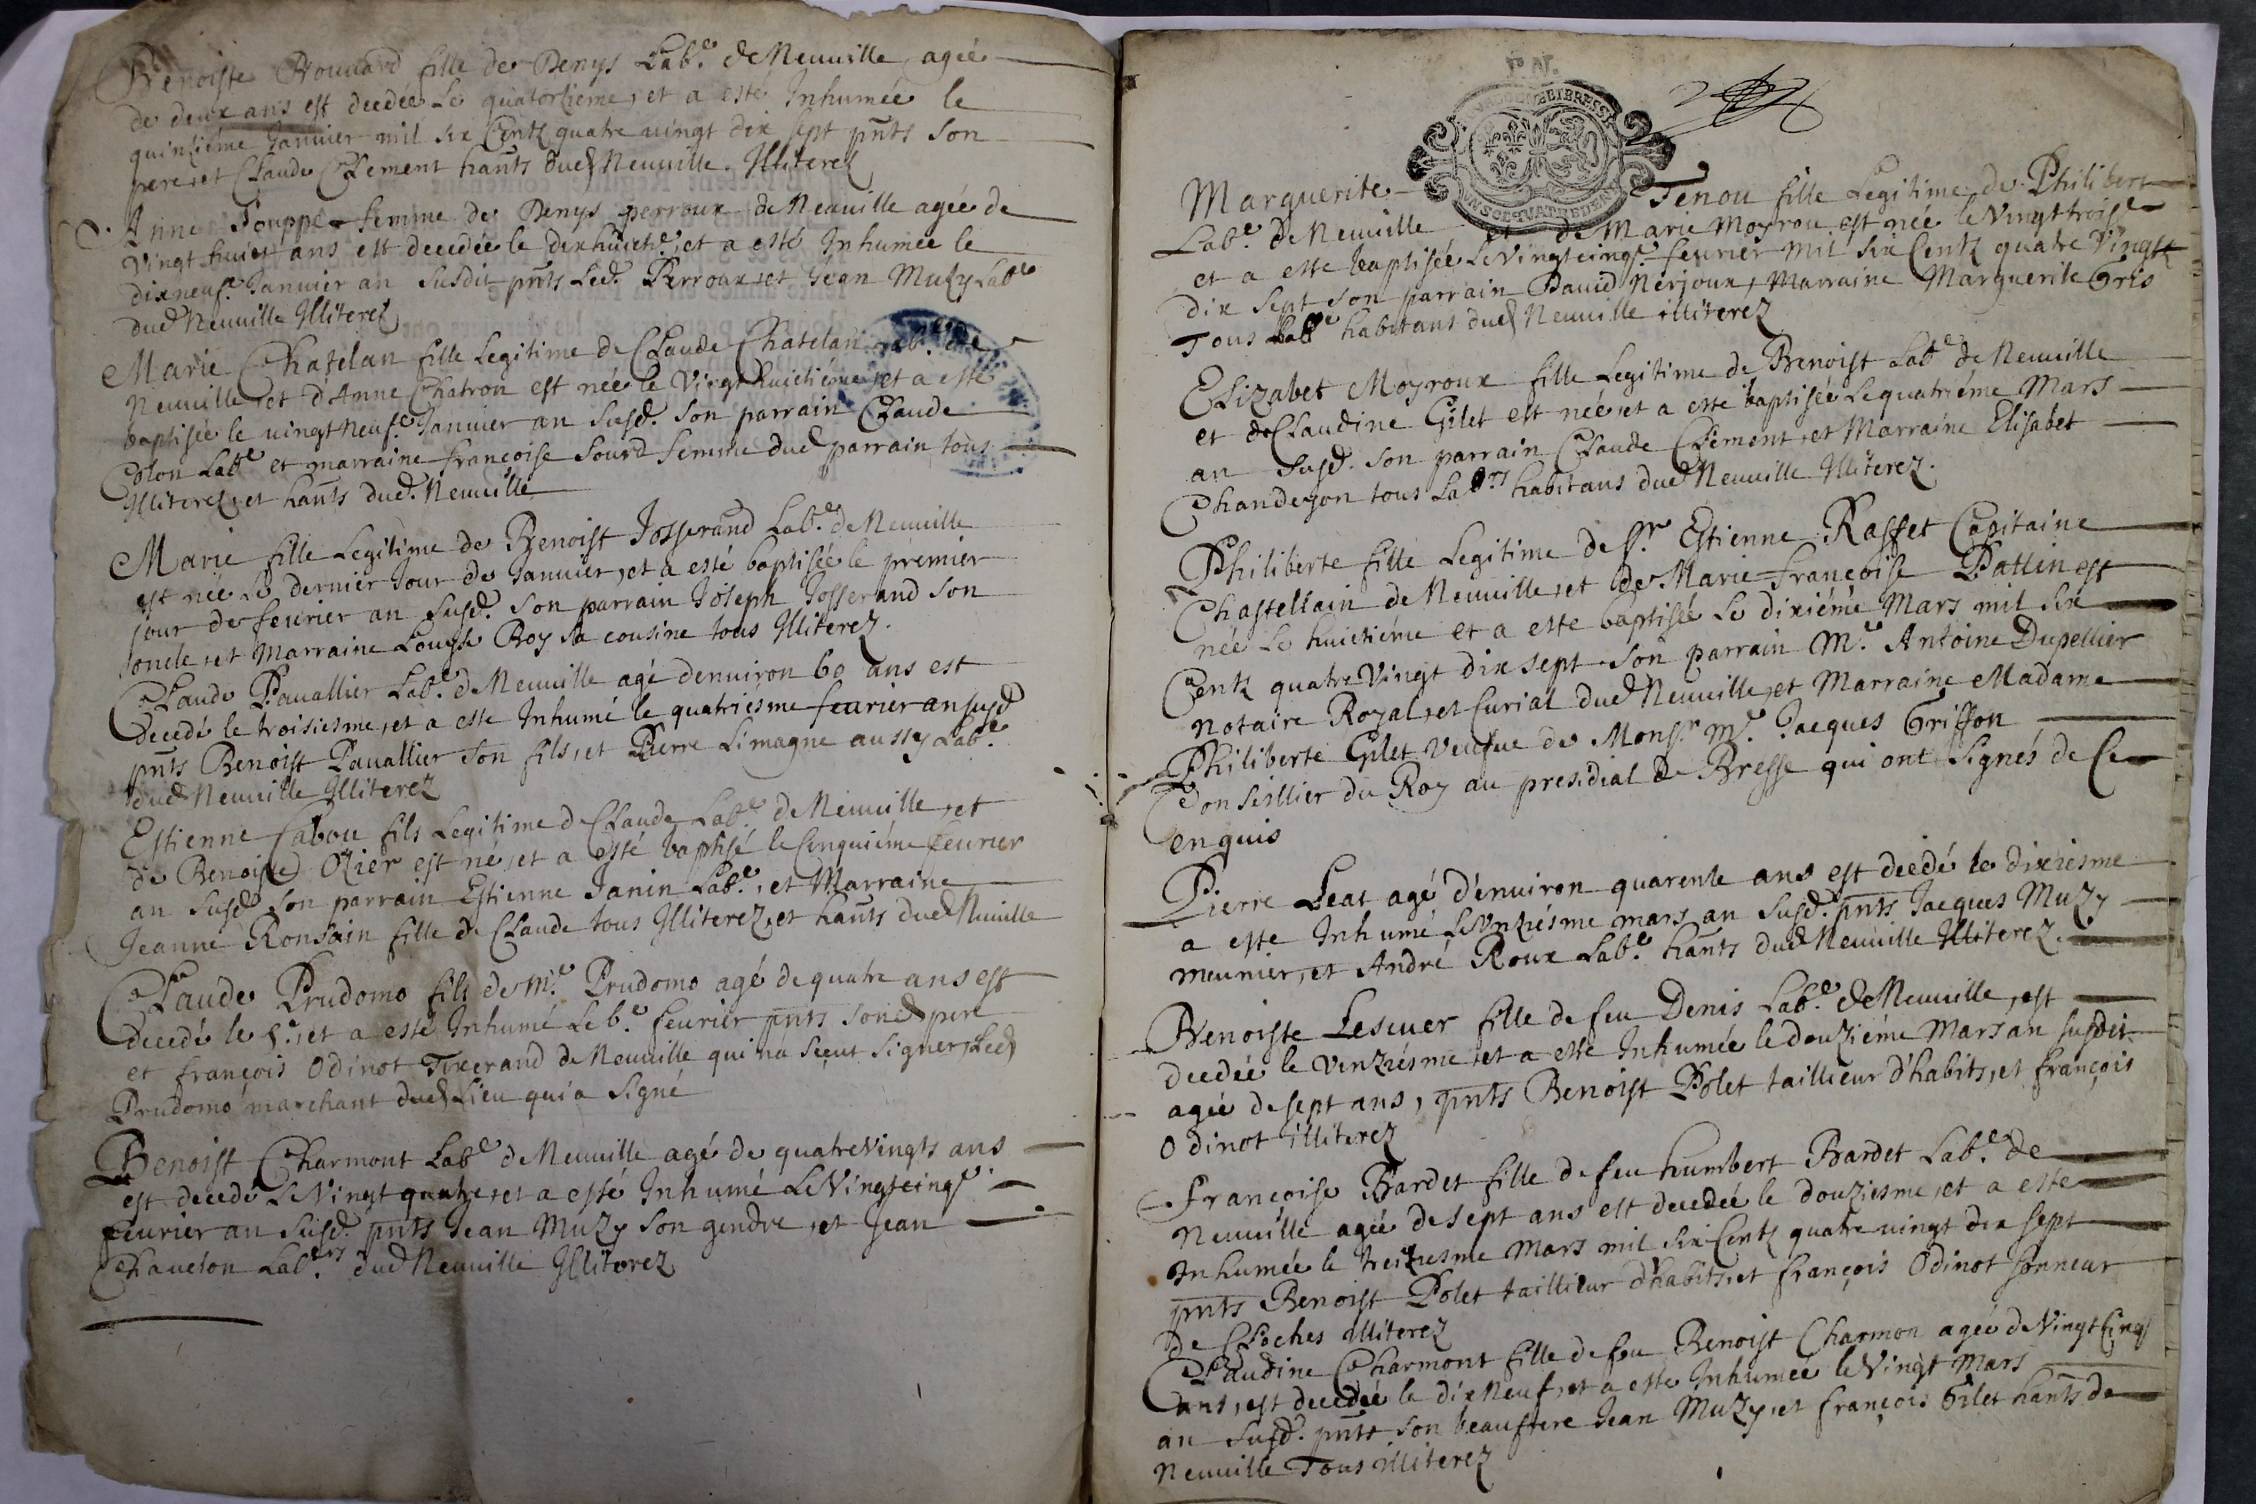 Benoiste Bouuard fille de Denys Lab.e de Neuuille, agée
de deux ans est decedée le quatorzieme, et a esté Inhumée le
quinziéme Januier mil six Centz quatre uingt dix sept pnts son
pere, et Claude Clement hants dud Neuuille. Illiterez
Anne Jouppe femme de Denys perroux de Neuuille agée de
Vingt huict ans est decedée le dix huicte, et a esté Inhumée le
dixneuf.e Januier an susdit pnts Led. Perroux, et Jean Muzy Labe
dud Neuuille Illiterez
Marie Chatelan fille Legitime de Claude Chatelan Lab.e de
Neuuille, et d'Anne Chatron est née le Vingt huictiéme, et a este
baptisée le uingt neuf.e Januier an susd. son parrain Claude
Colon Labe et marraine françoise Sourd femme dud parrain tous
Illiterez, et hants dud. Neuuille
Marie fille Legitime de Benoist Josserand Lab.e de Neuuille
est née le dernier Jour de Januier, et a esté baptisée le premier
jour de feurier an susd. son parrain Joseph Josserand son
oncle, et Marraine Louyse Boy sa cousine tous Illiterez.
Claude Pauallier Lab.e de Neuuille agé denuiron 60 ans est
decedé le troisiesme, et a este Inhumé le quatriesme feurier an susd
pnts Benoist Pauallier son fils, et Pierre Limagne aussy Labe
dud Neuuille Illiterez
Estienne Cabou fils Legitime de Claude Labe de Neuuille, et
de Benoiste Ozier est né, et a esté baptisé le Cinquiéme feurier
an susd son parrain Estienne Janin Labe, et Marraine
Jeanne Ronsain fille de Claude tous Illiterez, et hants dud Neuuille
Claude Prudomo fils de M.e Prudomo agé de quatre ans est
decedé le 5.e, et a esté Inhumé le 6.e feurier pnts sond pere
et françois Odinot Tixerand de Neuuille qui na sçeut signer, Led
Prudomo marchant dud Lieu qui a signé
Benoist Charmont Labe de Neuuille agé de quatre Vingts ans
est decedé le Vingt quatre, et a esté Inhumé le Vingt cinqe
feurier an susd. pnts Jean Muzy son gendre, et Jean
Chaueton Lab.rs dud Neuuille Illiterez
P.N.
Marguerite Tenou fille Legitime de Philibert
Labe de Neuuille et de Marie Moyrou est née le Vingt troise
et a este baptisée le Vingt cinq.e feurier mil six Centz quatre Vingtz
dix sept son parrain Dauid Nerjoux, Marraine Marguerite Gris
Tous Labe habitans dud Neuuille illiterez
Elizabet Moyroux fille Legitime de Benoist Labe de Neuuille
et de Claudine Gilet est née, et a esté baptisée le quatriéme Mars
an susd. son parrain Claude Clement, et Marraine Elisabet
Chandeyon tous Labrs habitans dud Neuuille Illiterez.
Philiberte fille Legitime de Sr. Estienne Raffet Capitaine
Chastellain de Neuuille, et de Marie françoise Patlin est
née le huictiéme et a este baptisée le dixiéme Mars mil six
Centz quatre Vingt dix sept son parrain M.e Antoine Dupellier
notaire Royal, et Curial dud Neuuille, et Marraine Madame
Philiberte Gilet Veufue de Mons.r m.e Jacques Griffon
Conseillier du Roy au presidial de Bresse qui ont signés de Ce
enquis
Pierre Leat agé d'enuiron quarente ans est decedé le dixiesme
a este Inhumé le Vnziésme mars an susd. pnts Jacques Muzy
meunier, et André Roux Labe. hants dud Neuuille Illiterez.
Benoiste Lescuer fille de feu Denis Labe. de Neuuille, est
decedée le Vnziésme, et a este Inhumée le douziéme Mars an susdit
agée de sept ans, pnts Benoist Polet taillieur d'habits, et françois
Odinot illiterez
Françoise Bardet fille de feu humbert Bardet Labe. de
Neuuille agée de sept ans est decedée le douziesme, et a este
Inhumée le treiziesme Mars mil six Centz quatre uingt dix sept
pnts Benoist Polet taillieur d'habits, et françois Odinot sonneur
de Cloches illiterez
Claudine Charmont fille de feu Benoist Charmon agée de Vingt Cinq
ans, est decedée le dix Neuf, et a este Inhumée le Vingt Mars
an susd. pnts son beaufrere Jean Muzy, et françois Gilet hants de
Neuuille Tous illiterez